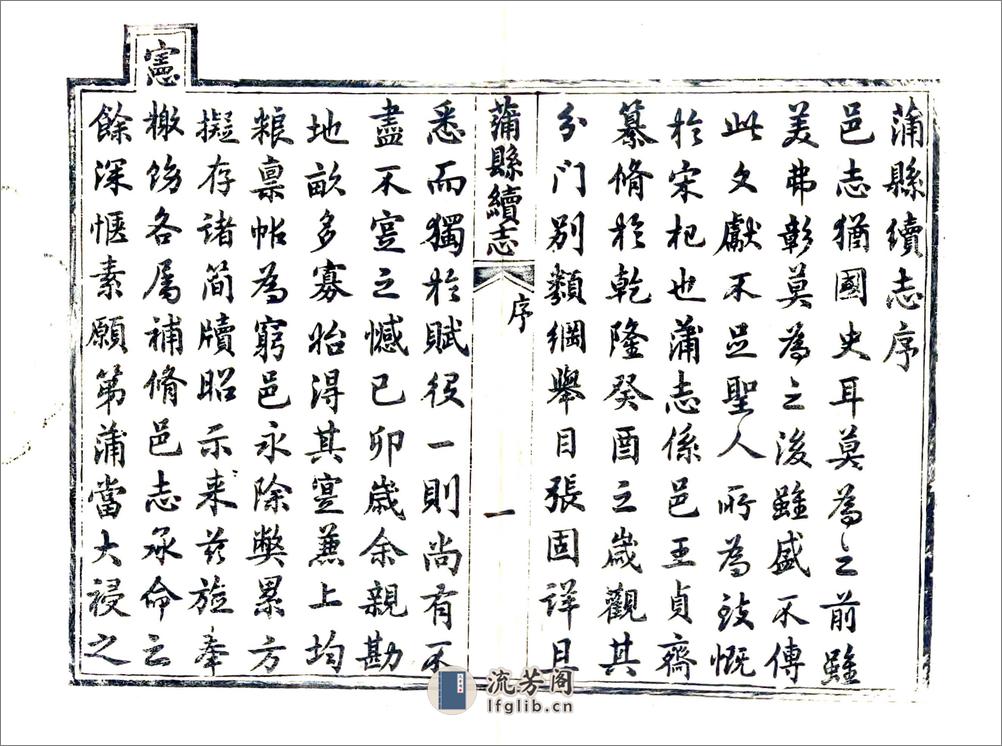 蒲縣續志序
邑志猶國史耳莫為之前雖
美弗彰莫為之後雖盛不傳
此文獻不足聖人所為致慨
於宋杞也蒲志係邑王貞齋
纂脩於乾隆癸酉之歲觀其
分門別類綱舉目張固詳且
蒲縣續志
序
一
悉而獨於賦役一則尚有不
盡不寔之憾己卯歲余親勘
地畝多寡始得其寔蒹上均
粮禀帖為窮邑永除弊累方
擬存諸简牘昭示来兹旋奉
憲
檄飭各屬補脩邑志承命之
餘深愜素願第蒲當大祲之
流芳阁
lfglib.cn